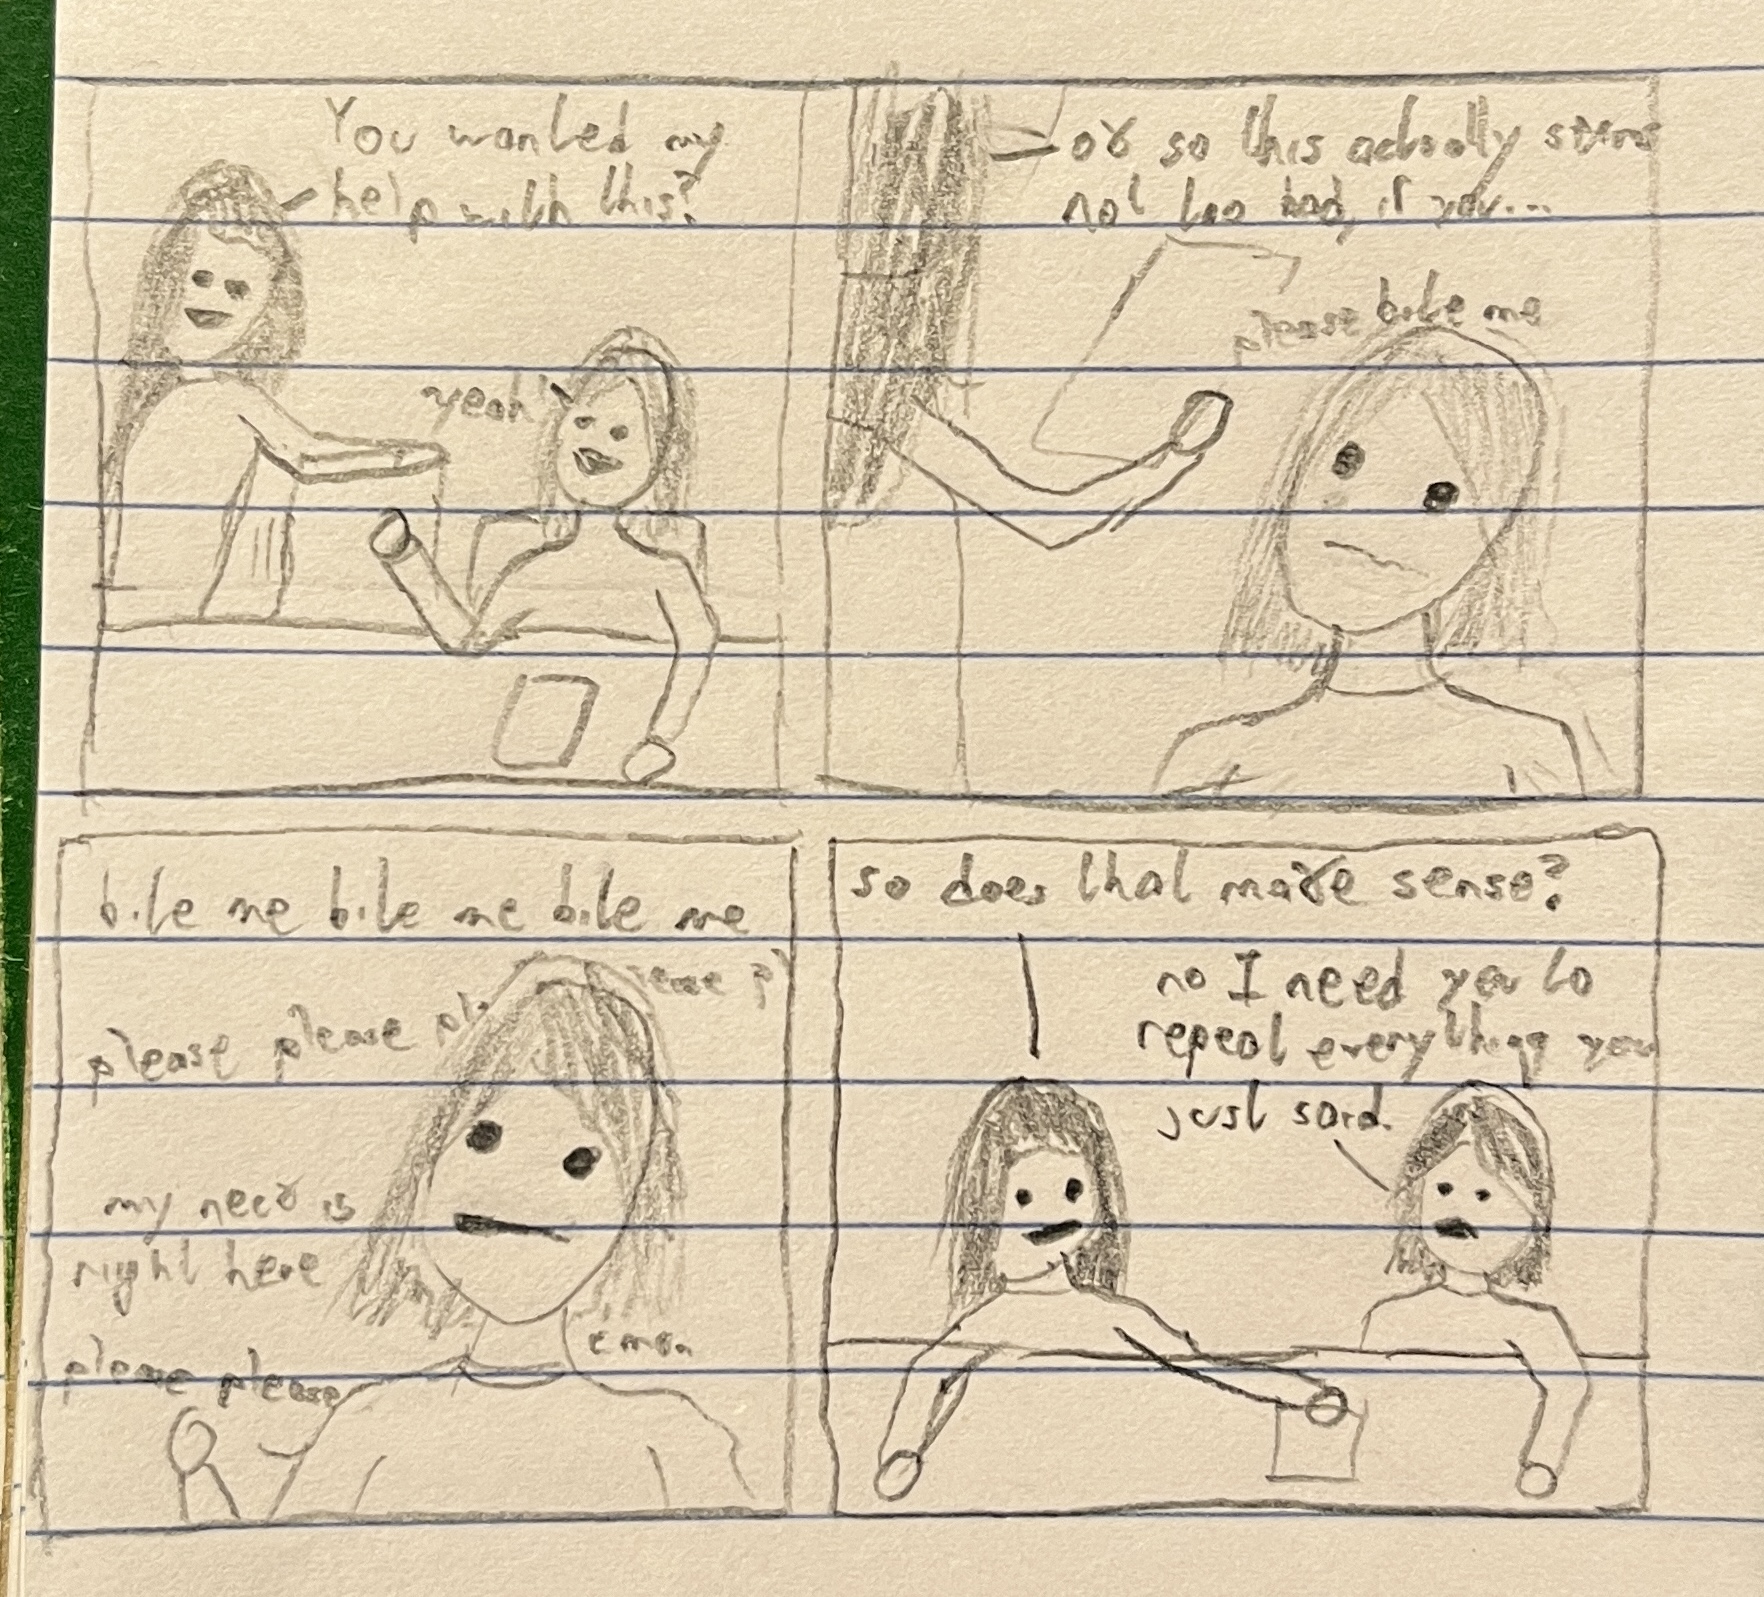 You wanted my
help with this?
yeah
ok so this actually seems
not too bad, if you...
please bite me
bite me bite me bite me
please please pl
ease p
my neck is
right here
please please
c'mon
so does that make sense?
no I need you to
repeat everything you
just said.